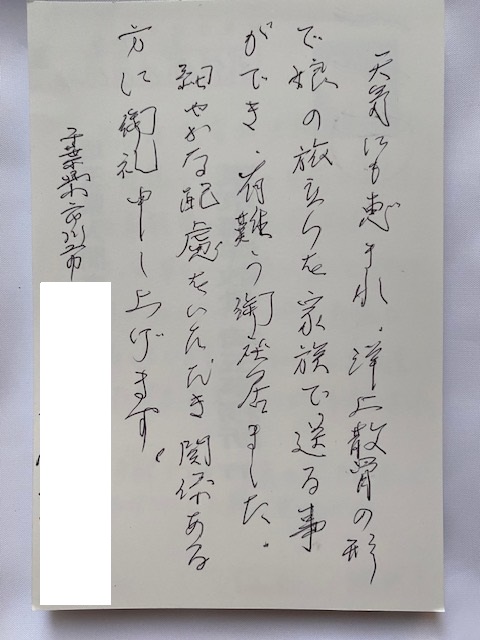 天気にも恵まれ、洋上散骨の形
で娘の旅立ちを家族で送る事
ができ、有難う御座居ました。
細やかな配慮をいただき関係ある
方に御礼申し上げます。
千葉県市川市